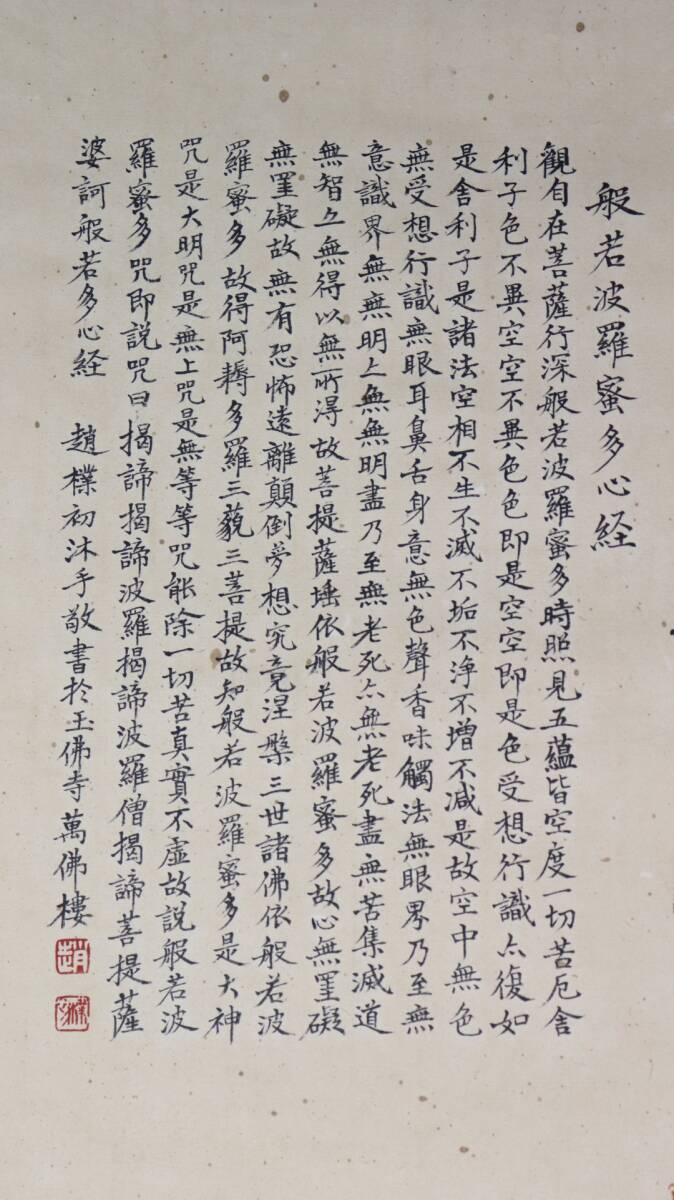 般若波羅蜜多心経
觀自在菩薩行深般若波羅蜜多時照見五蘊皆空度一切苦厄舍
利子色不異空空不異色色即是空空即是色受想行識亦復如
是舍利子是諸法空相不生不滅不垢不淨不增不減是故空中無色
無受想行識無眼耳鼻舌身意無色聲香味觸法無眼界乃至無
意識界無無明亦無無明盡乃至無老死亦無老死盡無苦集滅道
無智亦無得以無所得故菩提薩埵依般若波羅蜜多故心無罣礙
無罣礙故無有恐怖遠離顛倒夢想究竟涅槃三世諸佛依般若波
羅蜜多故得阿耨多羅三藐三菩提故知般若波羅蜜多是大神
咒是大明咒是無上咒是無等等咒能除一切苦真實不虛故説般若波
羅蜜多咒即説咒曰揭諦揭諦波羅揭諦波羅僧揭諦菩提薩
婆訶般若多心経 趙樸初沐手敬書於玉佛寺萬佛樓
趙
樸初